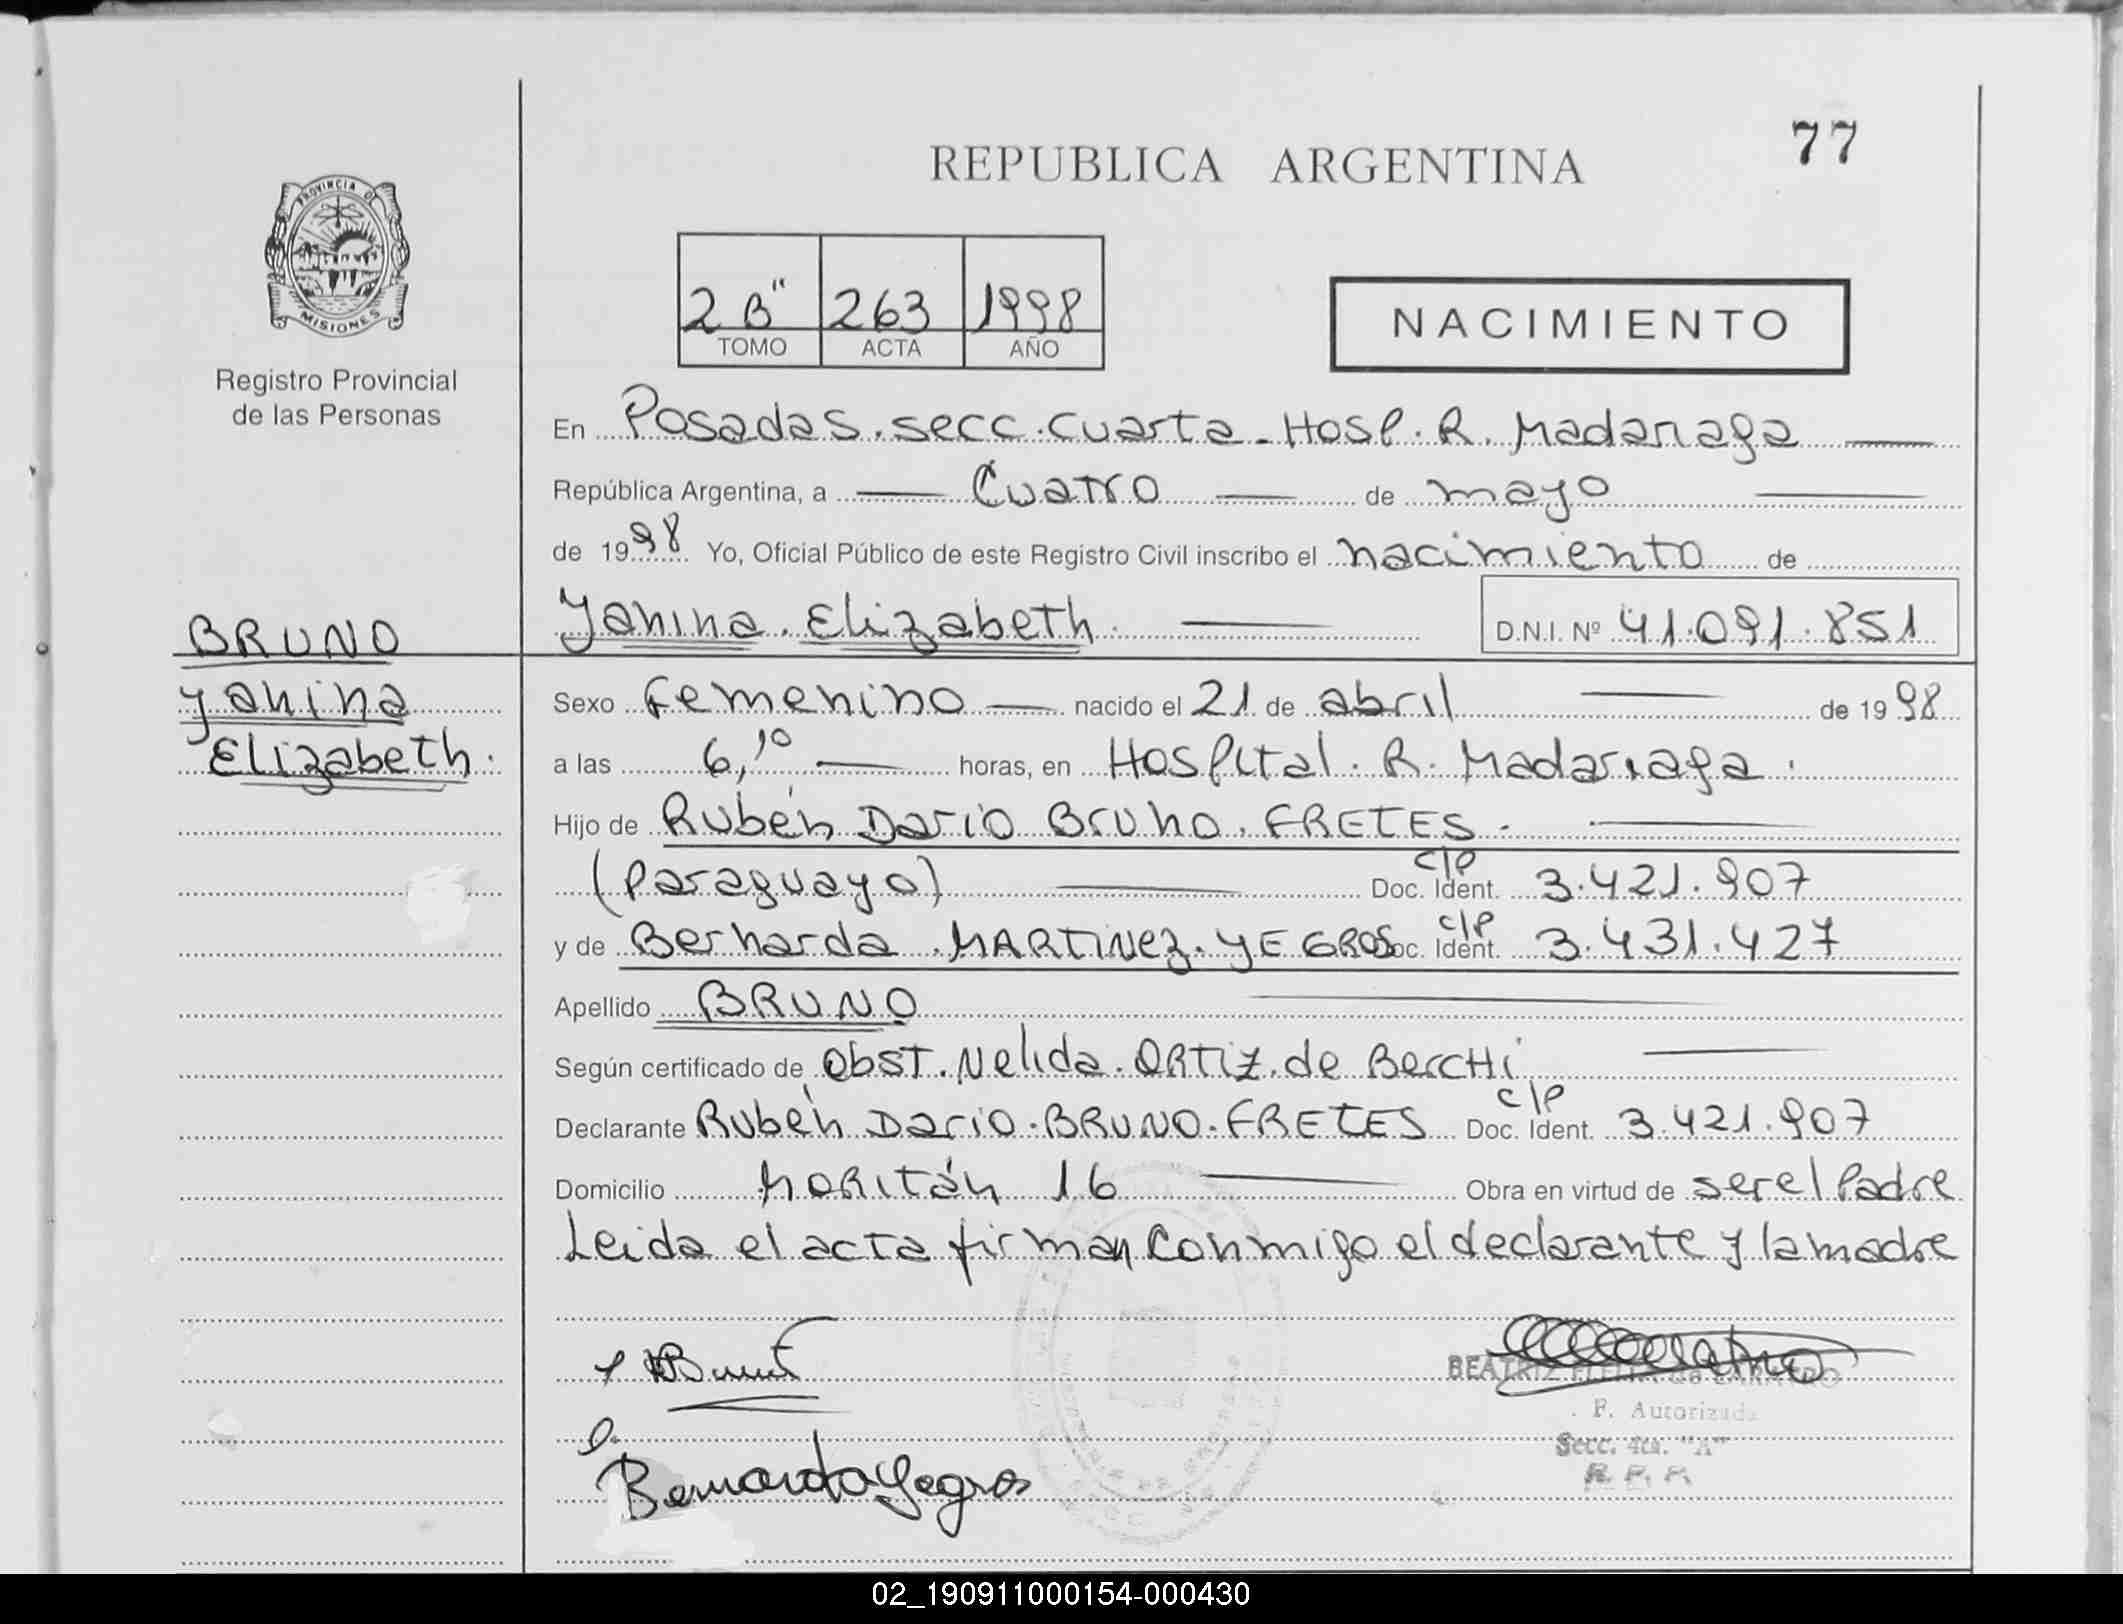 77
REPUBLICA ARGENTINA
PROVINCIA DE
MISIONES
Registro Provincial
de las Personas
2 B" 263 1998
TOMO ACTA AÑO
NACIMIENTO
En Posadas. secc. cuarta - Hosp. R. Madariaga
República Argentina, a Cuatro de mayo
de 1998 Yo, Oficial Público de este Registro Civil inscribo el nacimiento de
Yanina. Elizabeth. D.N.I. Nº 41.091.851
BRUNO
Yanina
Elizabeth.
Sexo Femenino nacido el 21 de abril de 1998
a las 6,10 horas, en Hospital. R. Madariaga.
Hijo de Rubén Dario Bruno. FRETES.
(Paraguayo) Doc. Ident. C/P 3.421.907
y de Bernarda. MARTINEZ. YEGROS Doc. Ident. C/P 3.431.427
Apellido BRUNO
Según certificado de Obst. Nelida. ORTIZ. de BercHi
Declarante Rubén Dario. BRUNO. FRETES Doc. Ident. C/P 3.421.907
Domicilio MORITán 16 Obra en virtud de ser el Padre
Leida el acta firman conmigo el declarante y la madre
Bernarda Yegros
BEATRIZ
F. Autorizada
Secc. 4ta. "A"
R. P. P.
02_190911000154-000430